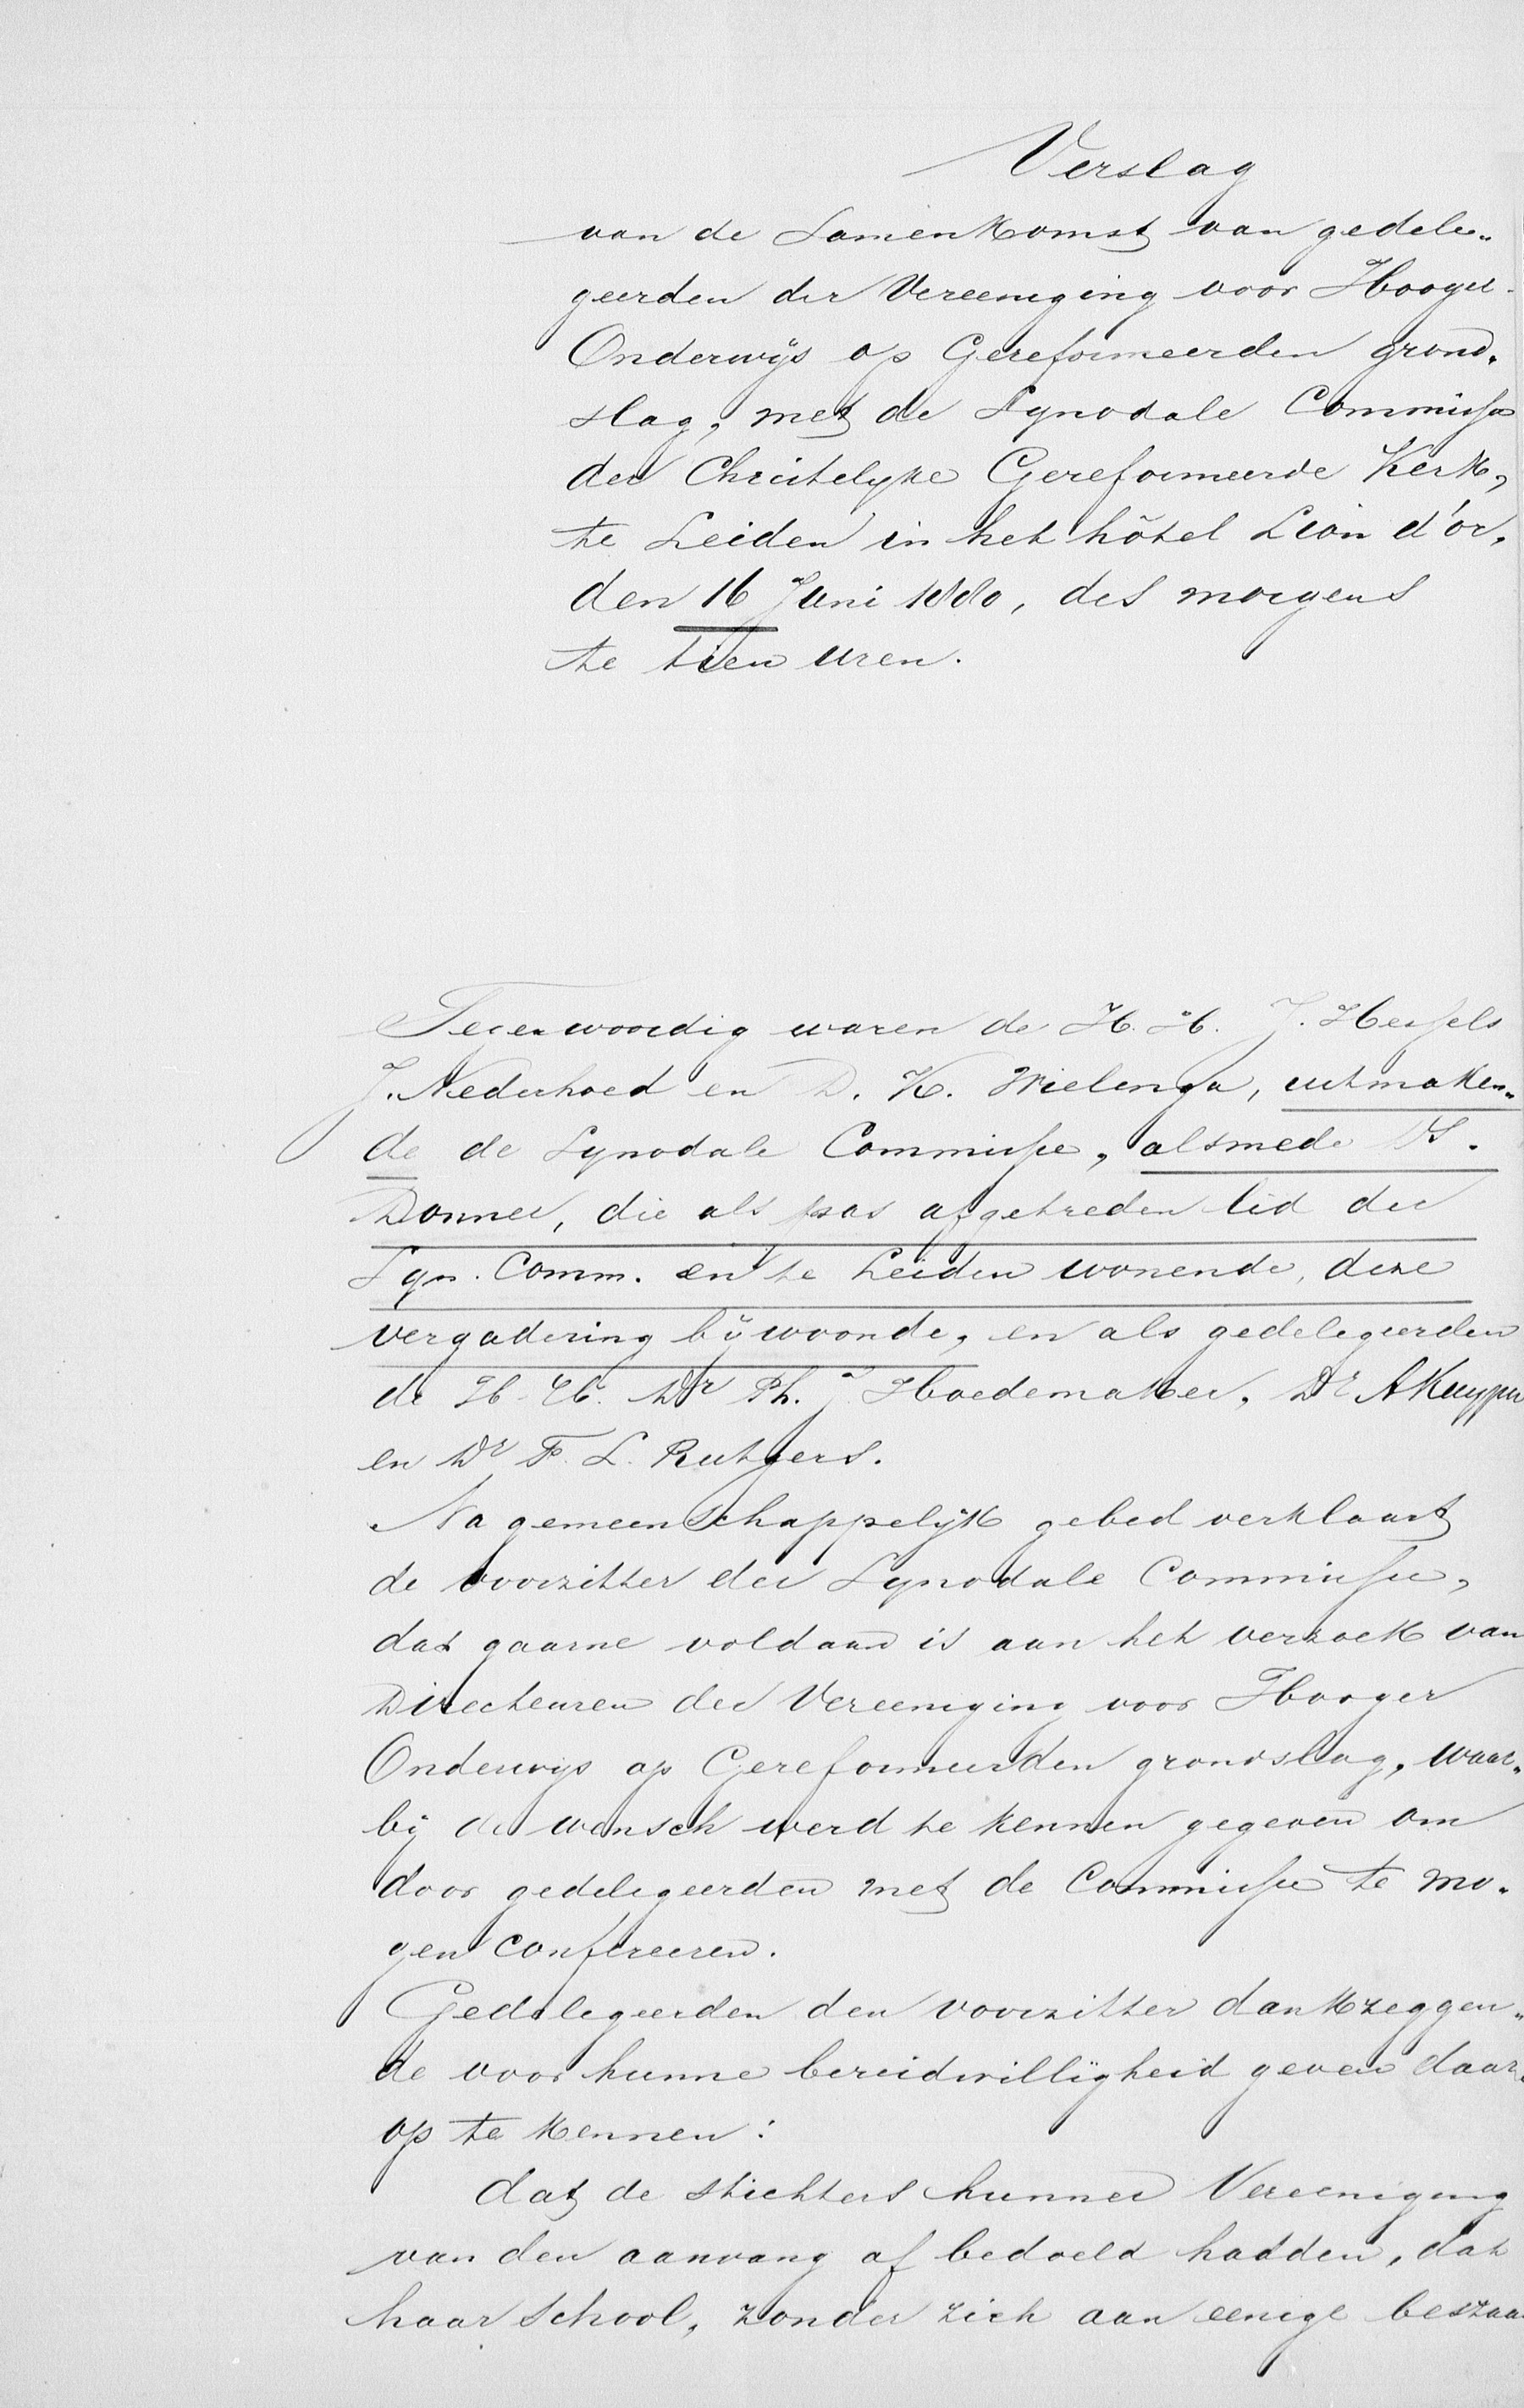 Verslag
van de Samenkomst van gedele„
geerden der Vereeniging voor Hooger
Onderwijs op Gereformeerden grond„
slag, met de Synodale Commissie
der Christelyke Gereformeerde Kerk,
te Leiden in het hôtel Lion d'or,
den 16 Juni 1880, des morgens
te tien uren.
Tegenwoordig waren de H.H. J. Hessels
J. Nederhoed en D. K. Wielenga, uitmaken„
de de Synodale Commissie, alsmede Ds.
Donner, die als pas afgetreden lid der
Syn. Comm. en te Leiden wonende, deze
vergadering bijwoonde, en als gedelegeerden
de H.H. Dr Ph. J. Hoedemaker, Dr A Kuyper
en Dr F. L. Rutgers.
Na gemeenschappelijk gebed verklaart
de voorzitter der Synodale Commissie,
dat gaarne voldaan is aan het verzoek van
Directeuren der Vereeniging voor Hooger
Onderwijs op Gereformeerden grondslag, waar„
bij de wensch werd te kennen gegeven om
door gedelegeerden met de Commissie te mo„
gen confereeren.
Gedelegeerden den voorzitter dankzeggen„
de voor hunne bereidwilligheid geven daar„
op te kennen:
dat de stichters hunner Vereeniging
van den aanvang af bedoeld hadden, dat
haar school, zonder zich aan eenige bestaa